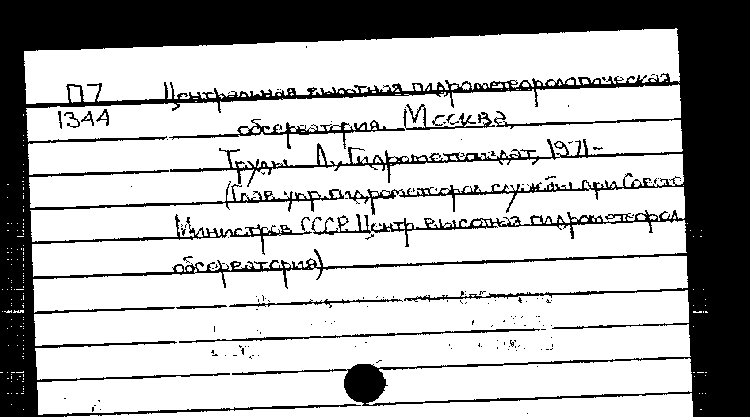 П7 Центральная высотная гидрометеорологическая
1344 обсерватория. Москва.
Труды. Л., Гидрометеоиздат, 1971-
(Глав. упр. гидрометеорол. службы при Совете
Министров СССР. Центр. высотная гидрометеорол.
обсерватория)